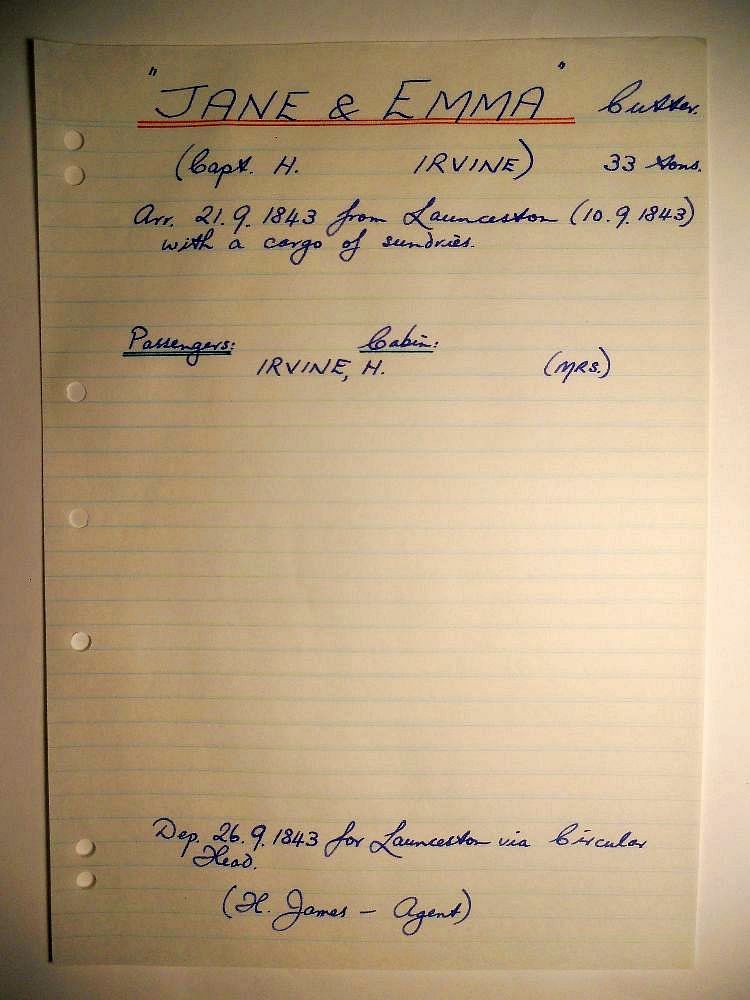 "JANE & EMMA" Cutter.
(Capt. H. IRVINE) 33 tons.
Arr. 21.9.1843 from Launceston (10.9.1843)
with a cargo of sundries.
Passengers: Cabin:
IRVINE, H. (MRS.)
Dep. 26.9.1843 for Launceston via Circular
Head.
(H. James - Agent)